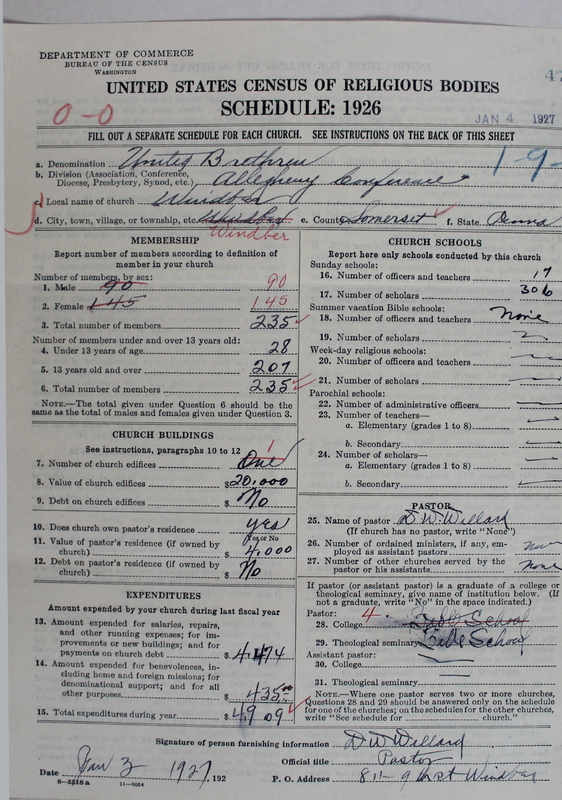 DEPARTMENT OF COMMERCE
BUREAU OF THE CENSUS
WASHINGTON
UNITED STATES CENSUS OF RELIGIOUS BODIES
SCHEDULE: 1926
0-0
JAN 4 1927
FILL OUT A SEPARATE SCHEDULE FOR EACH CHURCH. SEE INSTRUCTIONS ON THE BACK OF THIS SHEET
a. Denomination United Brethren
1-9-
b. Division (Association, Conference,
Diocese, Presbytery, Synod, etc.) Allegheny Conference
c. Local name of church Windber
d. City, town, village, or township, etc. Windber e. County Somerset f. State Penna
Windber
MEMBERSHIP
Report number of members according to definition of
member in your church
Number of members, by sex:
1. Male 90 90
2. Female 145 145
3. Total number of members 235
Number of members under and over 13 years old:
4. Under 13 years of age 28
5. 13 years old and over 207
6. Total number of members 235
NOTE.—The total given under Question 6 should be the
same as the total of males and females given under Question 3.
CHURCH BUILDINGS
See instructions, paragraphs 10 to 12
7. Number of church edifices One 1
8. Value of church edifices $20,000
9. Debt on church edifices $ No
10. Does church own pastor's residence yes
Yes or No
11. Value of pastor's residence (if owned by
church) $ 4,000
12. Debt on pastor's residence (if owned by
church) $ No
EXPENDITURES
Amount expended by your church during last fiscal year
13. Amount expended for salaries, repairs,
and other running expenses; for im-
provements or new buildings; and for
payments on church debt $ 4474
14. Amount expended for benevolences, in-
cluding home and foreign missions; for
denominational support; and for all
other purposes $ 435.00
15. Total expenditures during year $ 4909
CHURCH SCHOOLS
Report here only schools conducted by this church
Sunday schools:
16. Number of officers and teachers 17
17. Number of scholars 306
Summer vacation Bible schools:
18. Number of officers and teachers None
19. Number of scholars
Week-day religious schools:
20. Number of officers and teachers
21. Number of scholars
Parochial schools:
22. Number of administrative officers
23. Number of teachers—
a. Elementary (grades 1 to 8)
b. Secondary
24. Number of scholars—
a. Elementary (grades 1 to 8)
b. Secondary
PASTOR
25. Name of pastor D. W. Willard
(If church has no pastor, write "None")
26. Number of ordained ministers, if any, em-
ployed as assistant pastors
27. Number of other churches served by the
pastor or his assistants None
If pastor (or assistant pastor) is a graduate of a college or
theological seminary, give name of institution below. (If
not a graduate, write "No" in the space indicated.)
Pastor:
28. College 4 Bible School
29. Theological seminary Bible School
Assistant pastor:
30. College
31. Theological seminary
NOTE.—Where one pastor serves two or more churches,
Questions 28 and 29 should be answered only on the schedule
for one of the churches; on the schedules for the other churches,
write "See schedule for church."
Signature of person furnishing information D W Willard
Official title Pastor
Date Jan 3 1927, 192
P. O. Address 811-9 St Windber
8-5518 a 11-9064